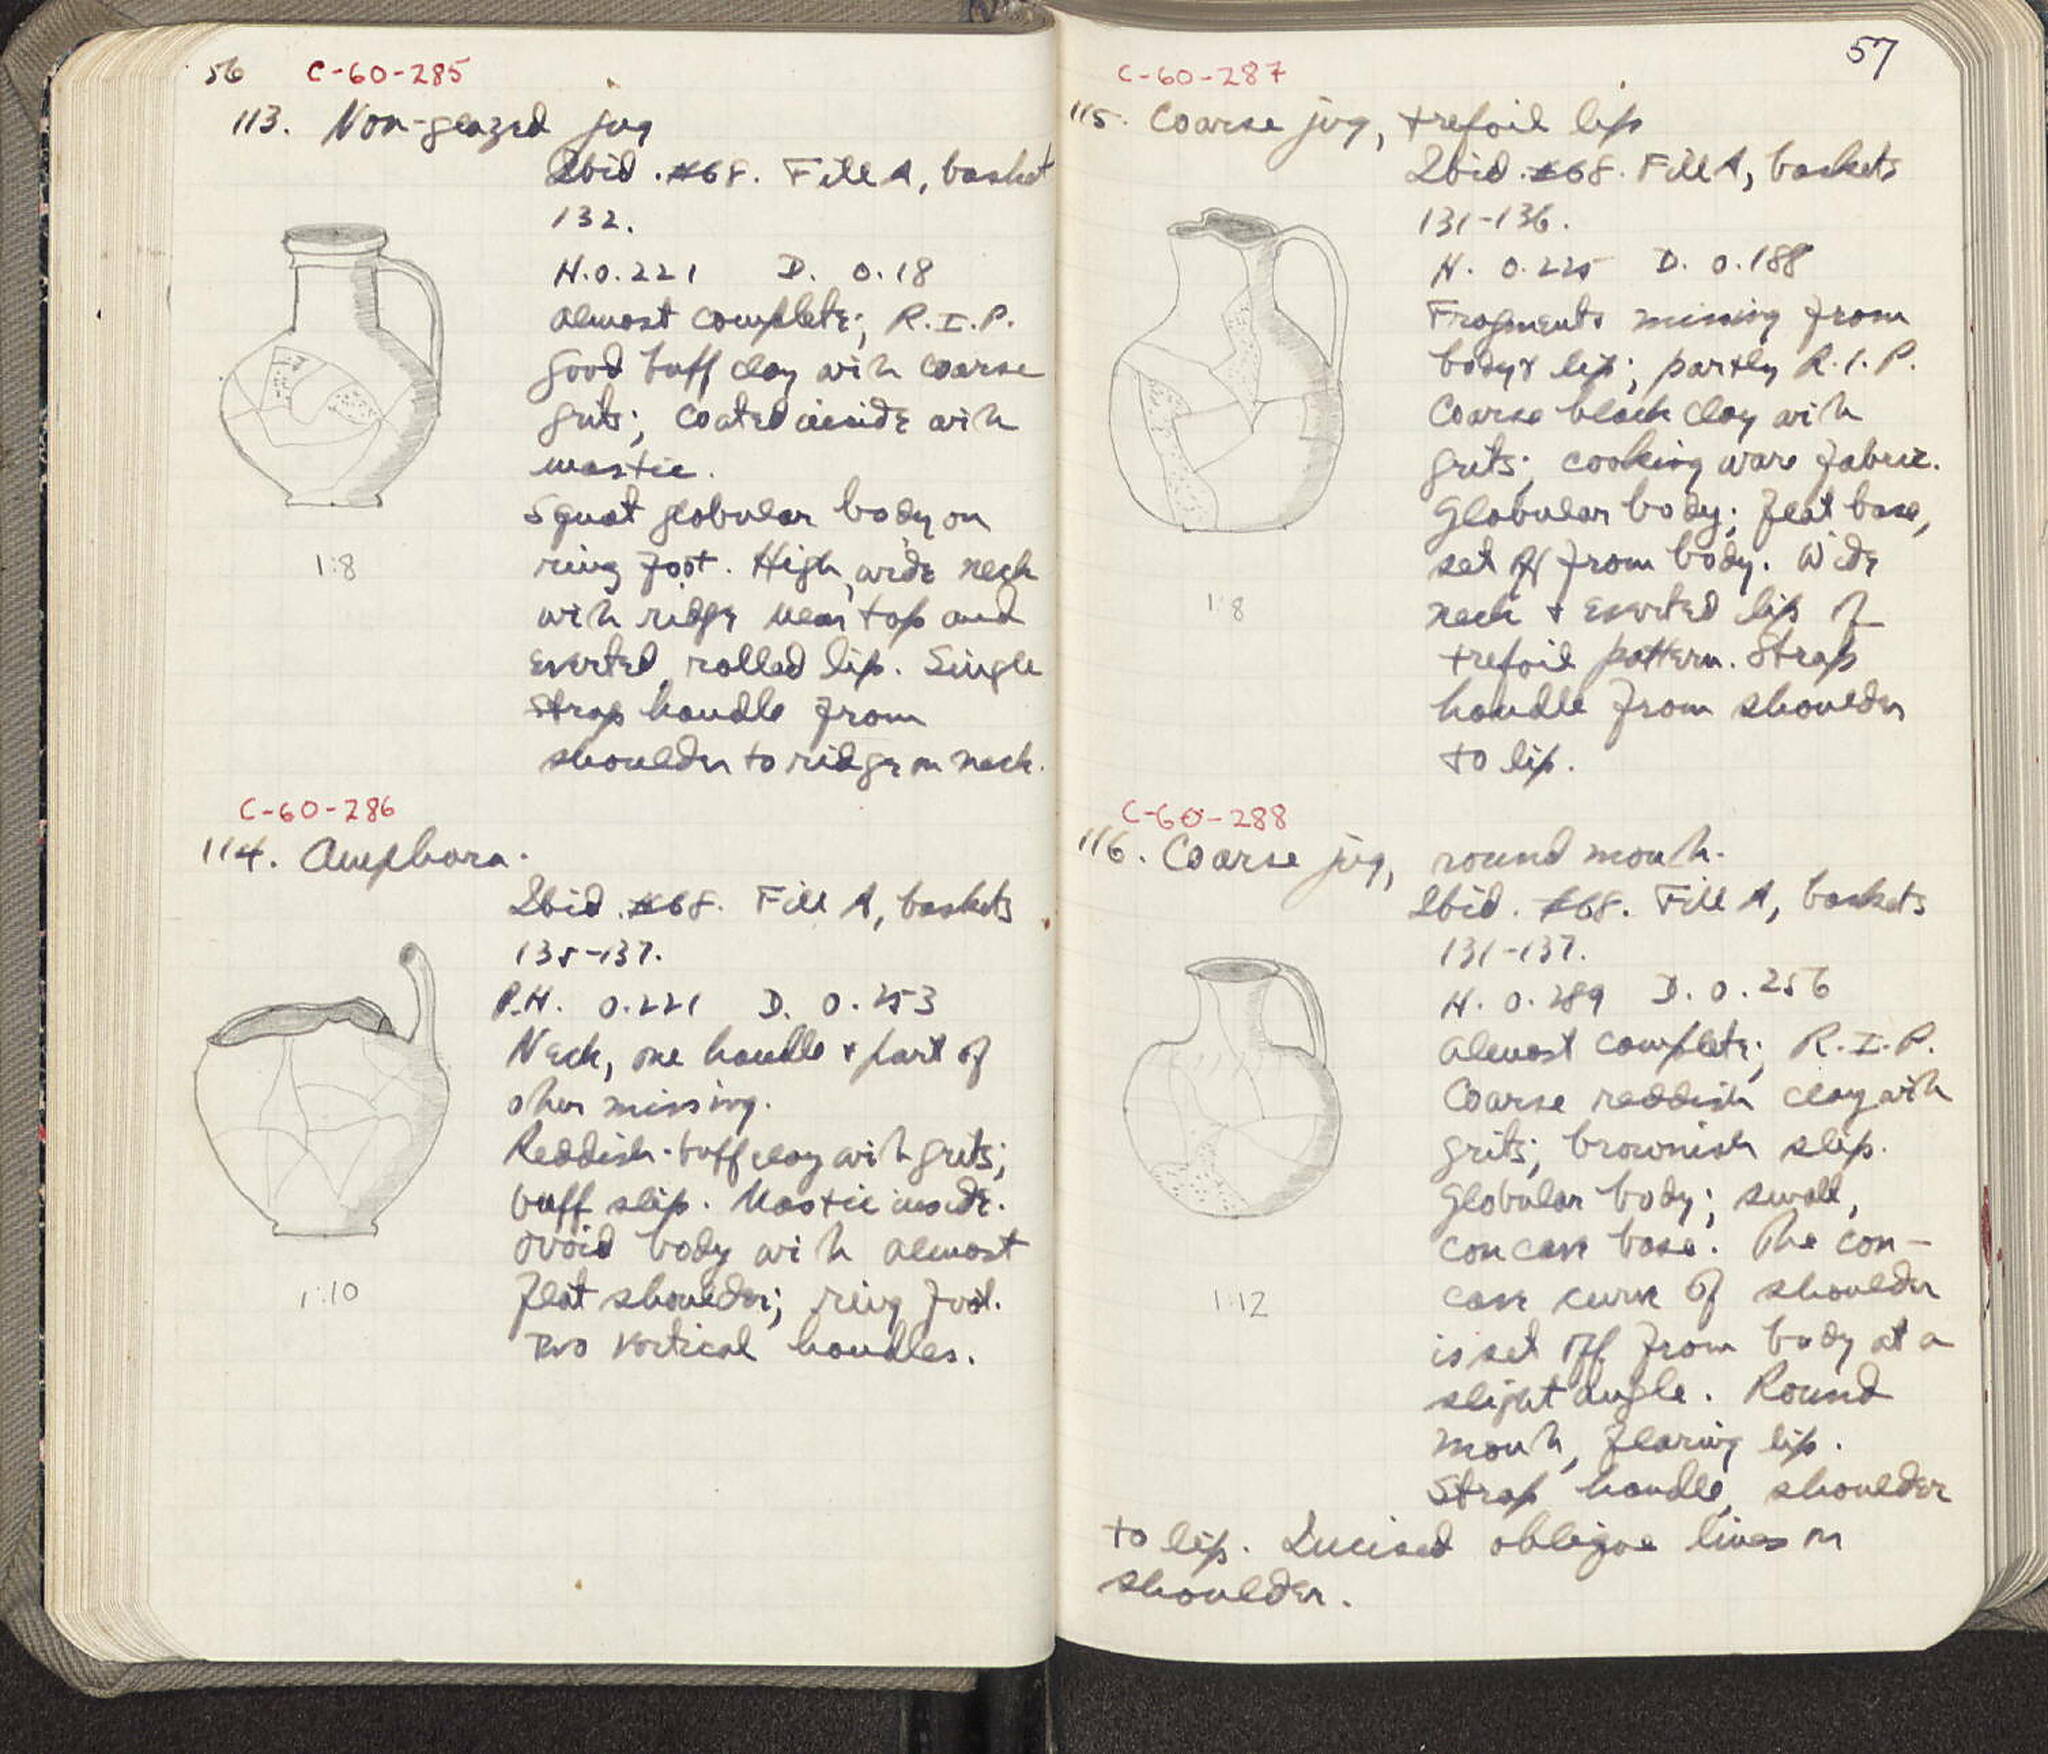 56 C-60-285
113. Non-glazed jug
Ibid. #68. Fill A, basket
132.
H. 0.221 D. 0.18
Almost complete; R.I.P.
Good buff clay with coarse
grits; coated inside with
mastic.
Squat globular body on
ring foot. High, wide neck
with ridge near top and
everted, rolled lip. Single
strap handle from
shoulder to ridge on neck.
1:8
C-60-286
114. Amphora.
Ibid. #68. Fill A, baskets
135-137.
P.H. 0.221 D. 0.253
Neck, one handle & part of
other missing.
Reddish-buff clay with grits;
buff slip. Mastic inside.
Ovoid body with almost
flat shoulder; ring foot.
Two vertical handles.
1:10
57
C-60-287
115. Coarse jug, trefoil lip
Ibid. #68. Fill A, baskets
131-136.
H. 0.225 D. 0.188
Fragments missing from
body & lip; partly R.I.P.
Coarse black clay with
grits; cooking ware fabric.
Globular body; flat base,
set off from body. Wide
neck & everted lip of
trefoil pattern. Strap
handle from shoulder
to lip.
1:8
C-60-288
116. Coarse jug, round mouth.
Ibid. #68. Fill A, baskets
131-137.
H. 0.289 D. 0.256
Almost complete; R.I.P.
Coarse reddish clay with
grits; brownish slip.
Globular body; small,
concave base. The con-
cave curve of shoulder
is set off from body at a
slight angle. Round
mouth, flaring lip.
Strap handle, shoulder
to lip. Incised oblique lines on
shoulder.
1:12